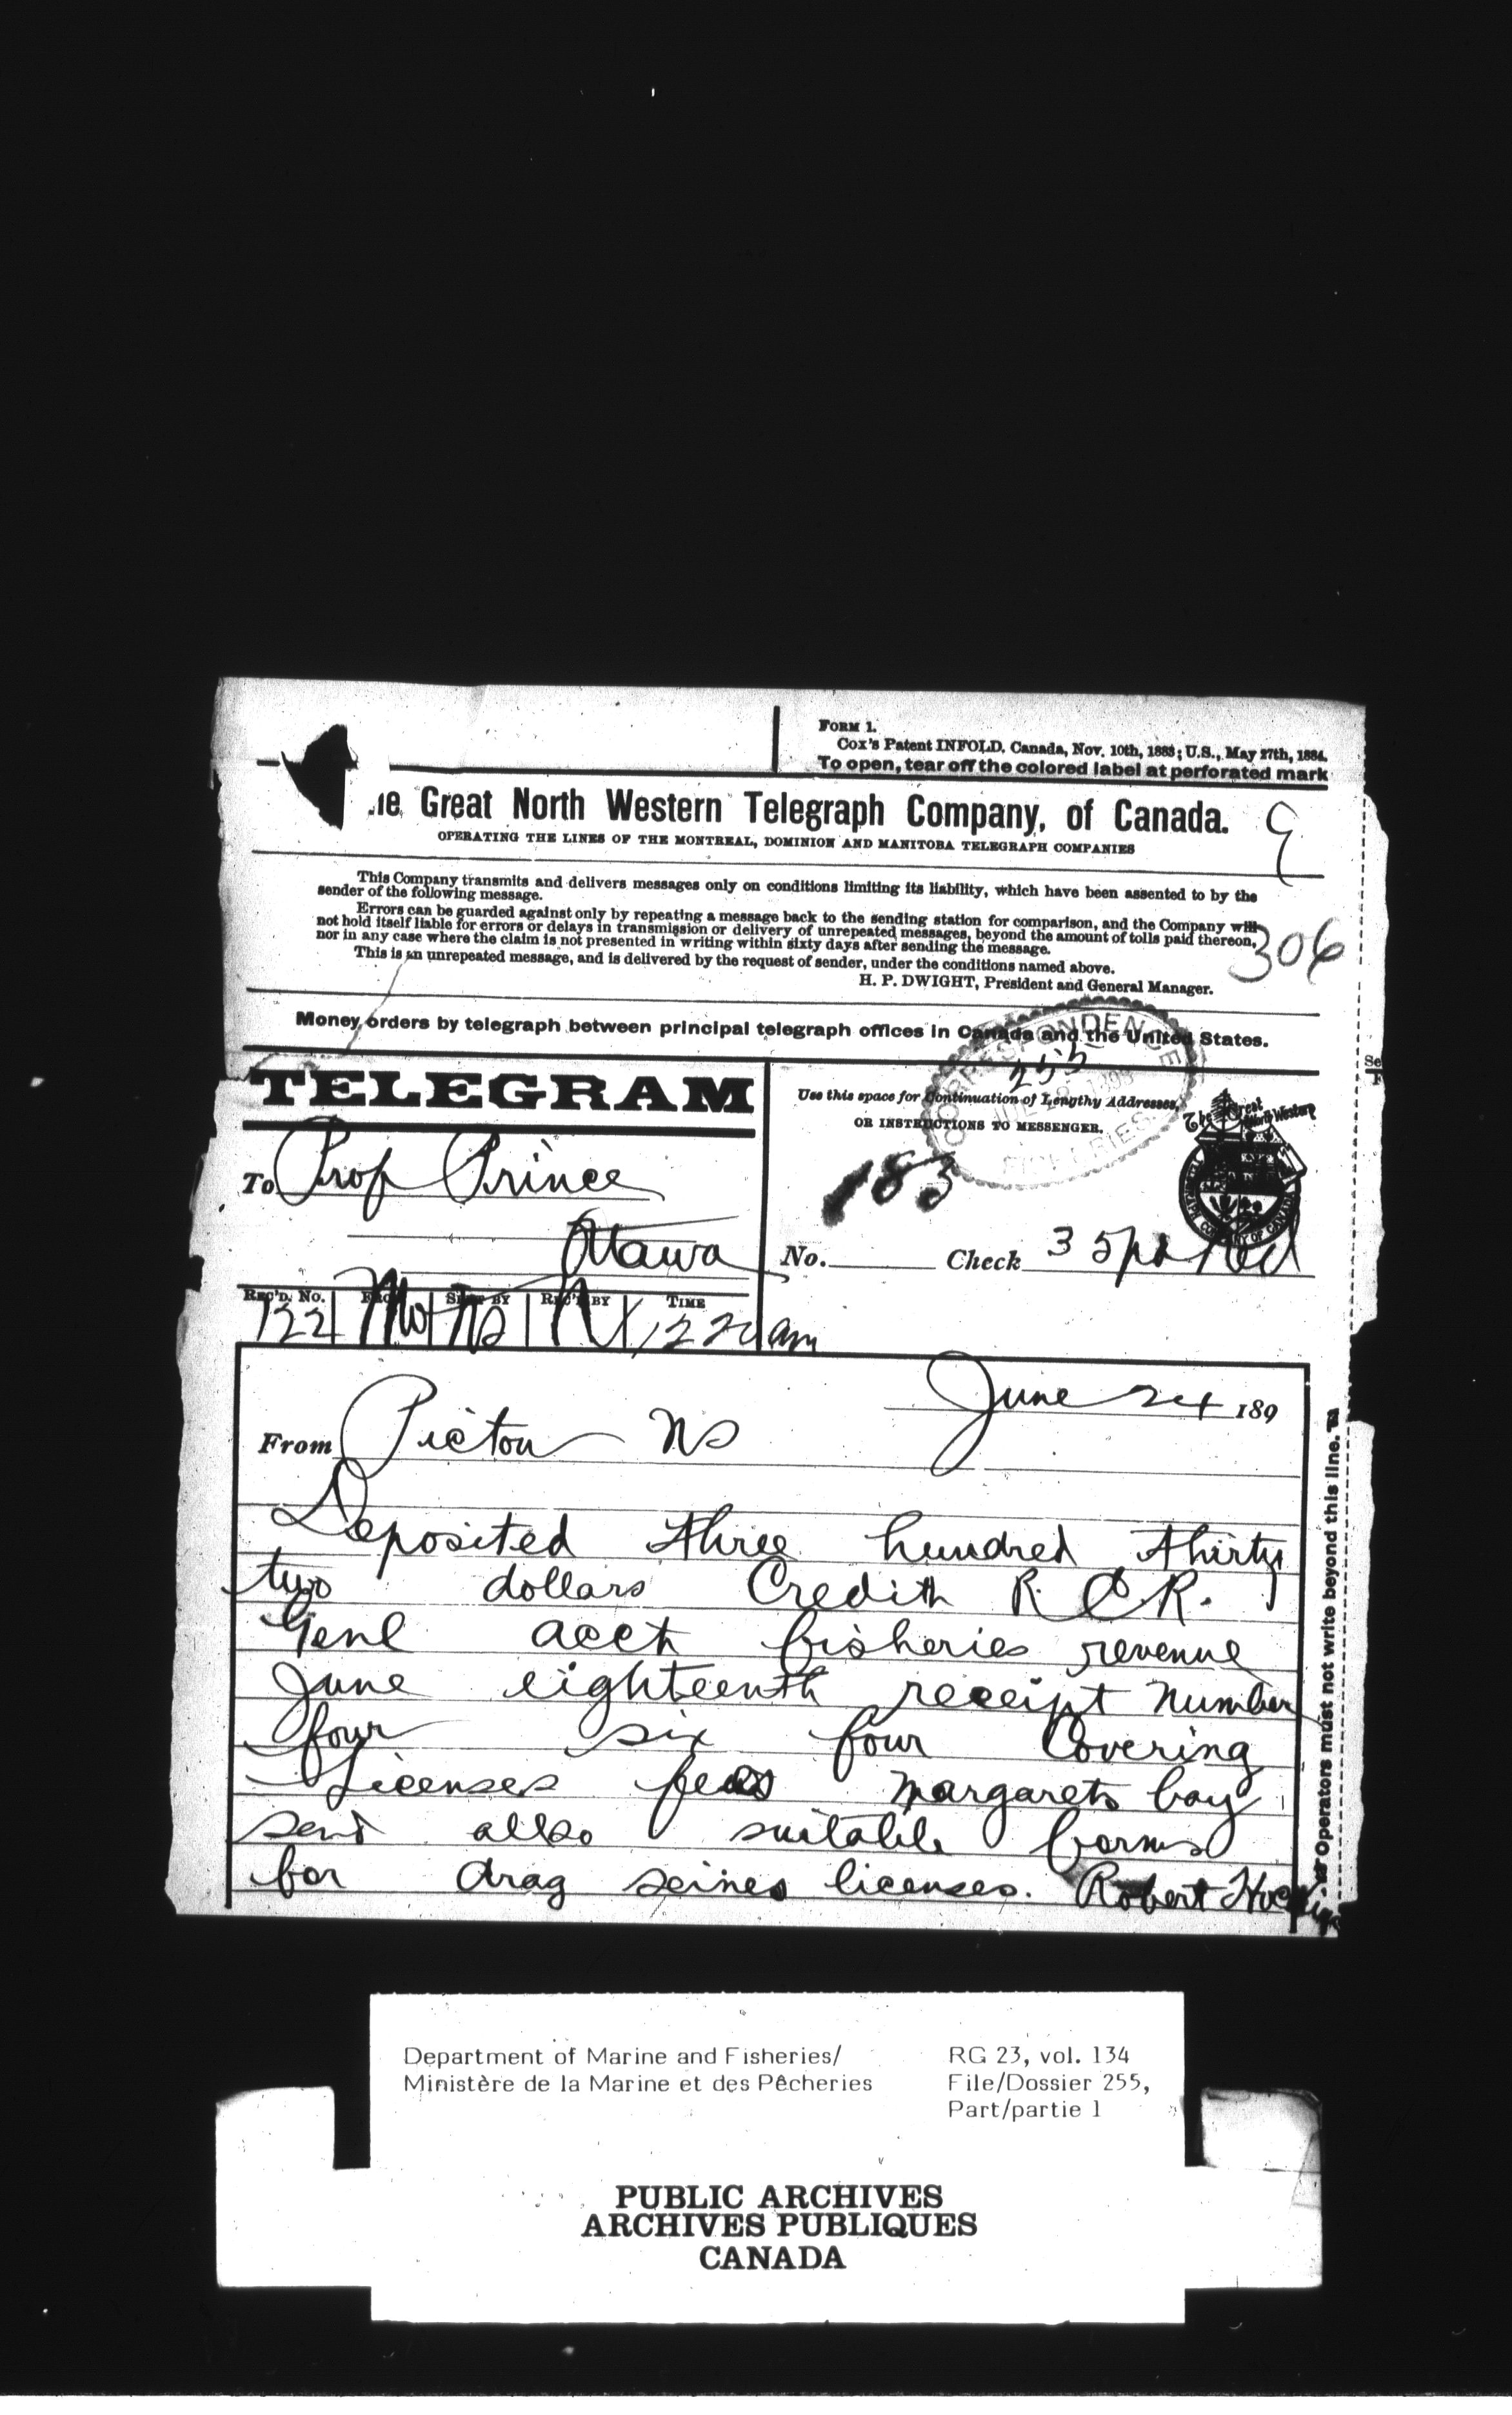 FORM 1.
Cox's Patent INFOLD. Canada, Nov. 10th, 1883; U.S., May 27th, 1884.
To open, tear off the colored label at perforated mark
Great North Western Telegraph Company, of Canada.
OPERATING THE LINES OF THE MONTREAL, DOMINION AND MANITOBA TELEGRAPH COMPANIES
This Company transmits and delivers messages only on conditions limiting its liability, which have been assented to by the
sender of the following message.
Errors can be guarded against only by repeating a message back to the sending station for comparison, and the Company will
not hold itself liable for errors or delays in transmission or delivery of unrepeated messages, beyond the amount of tolls paid thereon,
nor in any case where the claim is not presented in writing within sixty days after sending the message.
306
This is an unrepeated message, and is delivered by the request of sender, under the conditions named above.
H. P. DWIGHT, President and General Manager.
Money orders by telegraph between principal telegraph offices in Canada and the United States.
CORRESPONDENCE
255
FISHERIES
TELEGRAM
Use this space for Continuation of Lengthy Addresses,
OR INSTRUCTIONS TO MESSENGER.
The Great North Western
To Prof Prince
183
Ottawa
No. Check 35
REC'D. No. FROM SENT BY REC'D BY TIME
122
am
June 24 189
From Pictou NS
Deposited three hundred thirty
two dollars Credith R. C. R.
Genl acct fisheries revenue
June eighteenth receipt number
four six four Covering
Licenses fees margarets bay
send also suitable forms
for drag seines licenses. Robert Hockin
Operators must not write beyond this line.
Department of Marine and Fisheries/
Ministère de la Marine et des Pêcheries
RG 23, vol. 134
File/Dossier 255,
Part/partie 1
PUBLIC ARCHIVES
ARCHIVES PUBLIQUES
CANADA